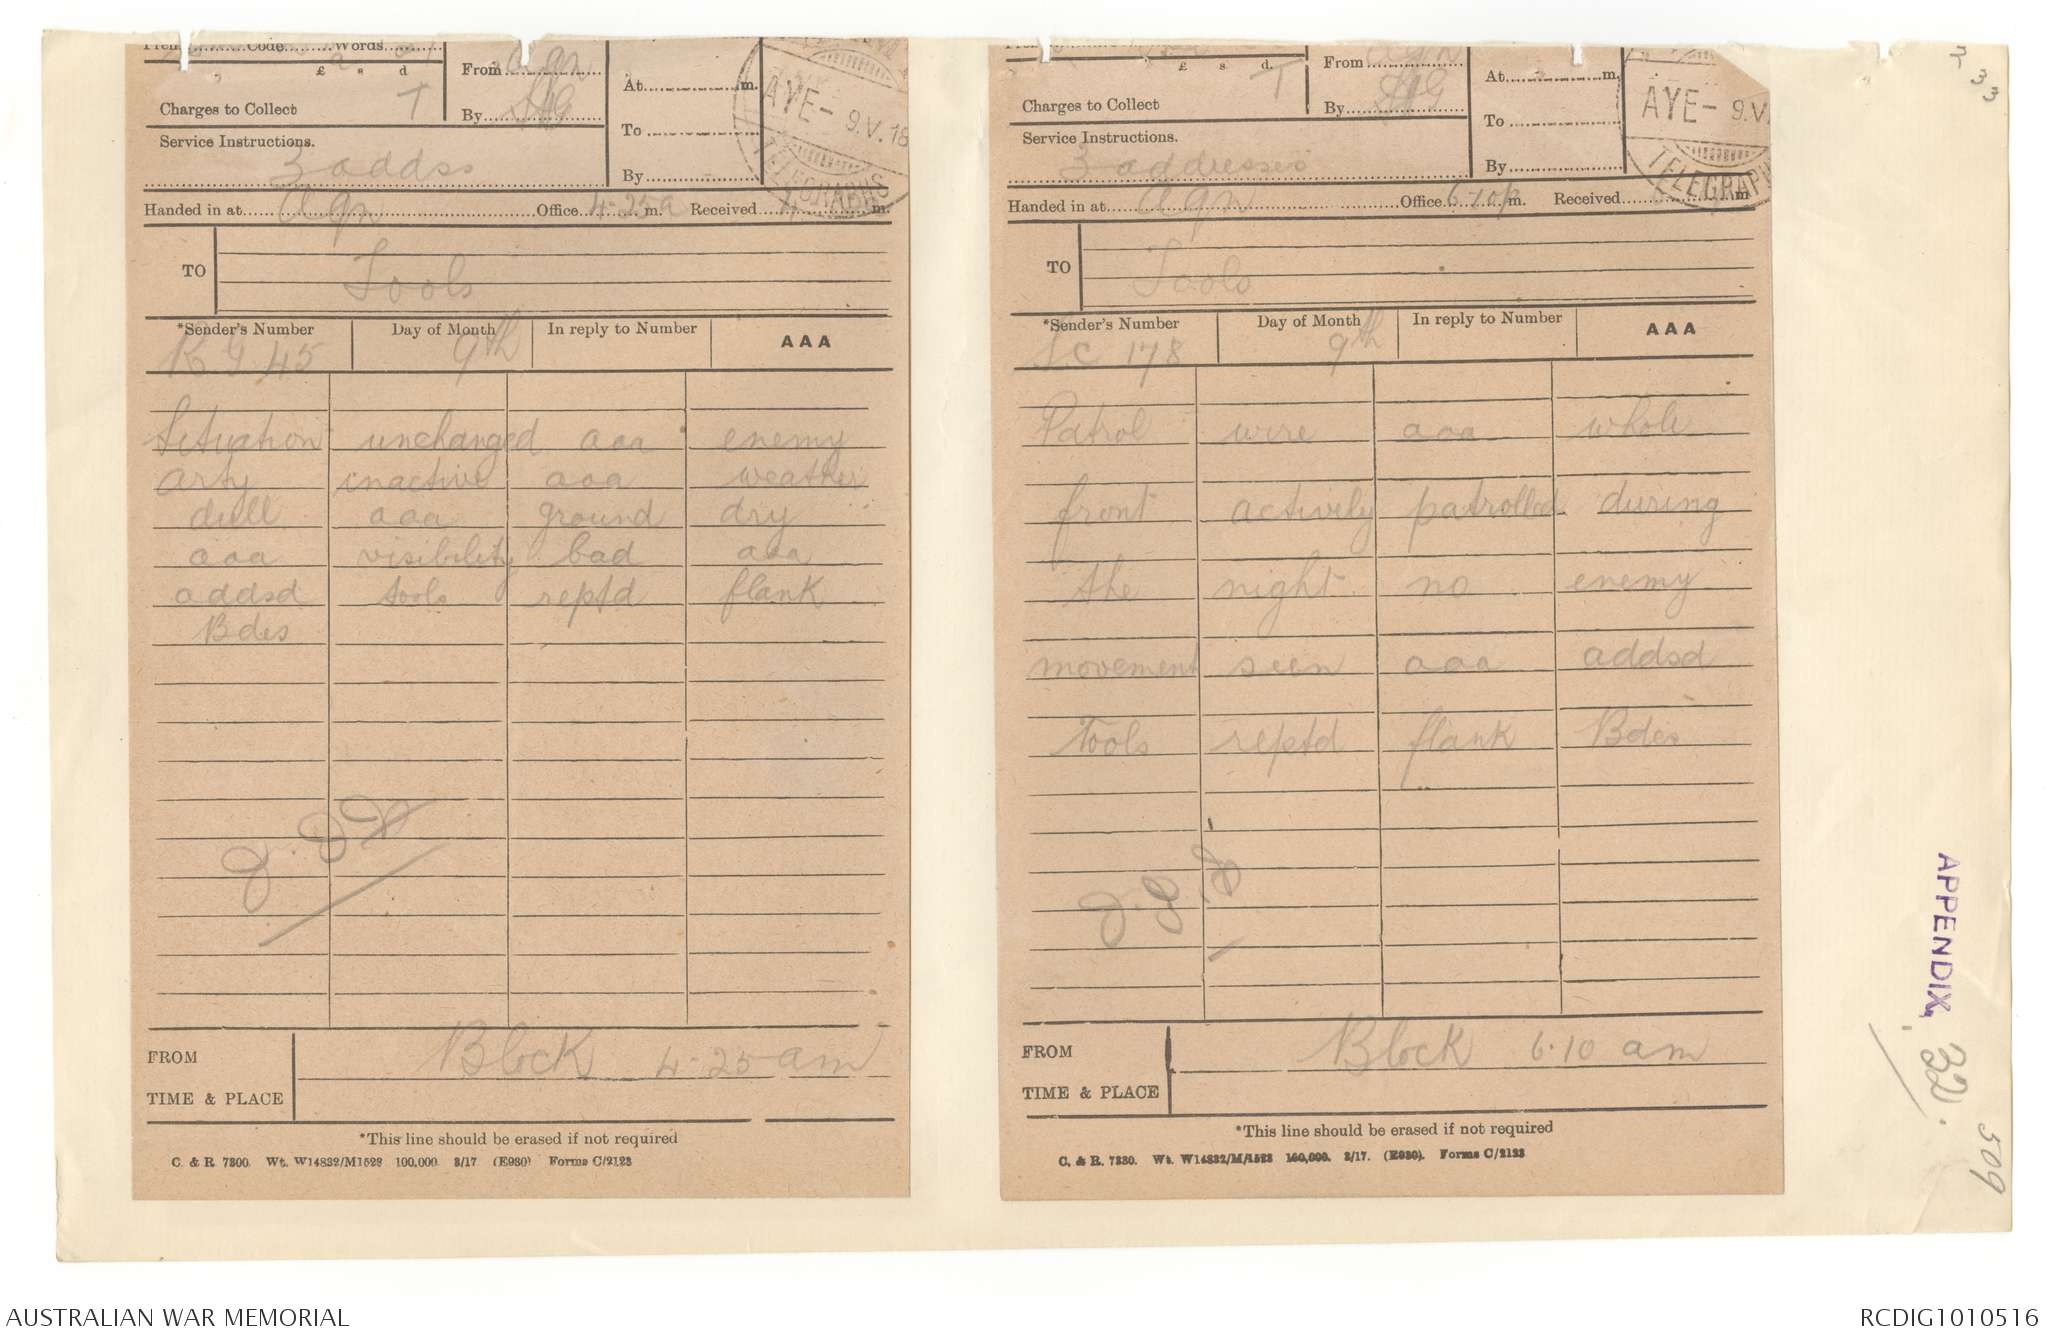 Code Words
£ s d
Charges to Collect T
From Agn
By
At m.
To
By
AYE - 9.V.18
TELEGRAPHS
Service Instructions.
3 addss
Handed in at Agn Office 4-25a m. Received m.
TO Tools
*Sender's Number Day of Month In reply to Number AAA
R G 45 9th
Situation unchanged aaa enemy
arty inactive aaa weather
dull aaa ground dry
aaa visibility bad aaa
addsd tools reptd flank
Bdes
FROM Block 4-25 am
TIME & PLACE
*This line should be erased if not required
C. & R. 7800. Wt. W14832/M1523 100,000. 3/17 (E980) Forms C/2123
£ s. d.
Charges to Collect T
From Agn
By
At m.
To
By
AYE - 9.V.
TELEGRAPH
Service Instructions.
3 addresses
Handed in at Agn Office 6-10p m. Received m
TO Tools
*Sender's Number Day of Month In reply to Number AAA
S.C 178 9th
Patrol wire aaa whole
front actively patrolled during
the night no enemy
movement seen aaa addsd
Tools reptd flank Bdes
FROM Block 6.10 am
TIME & PLACE
*This line should be erased if not required
C. & R. 7880. Wt. W14832/M/1523 100,000. 3/17. (E980). Forms C/2123
33
APPENDIX, 32.
509
AUSTRALIAN WAR MEMORIAL
RCDIG1010516